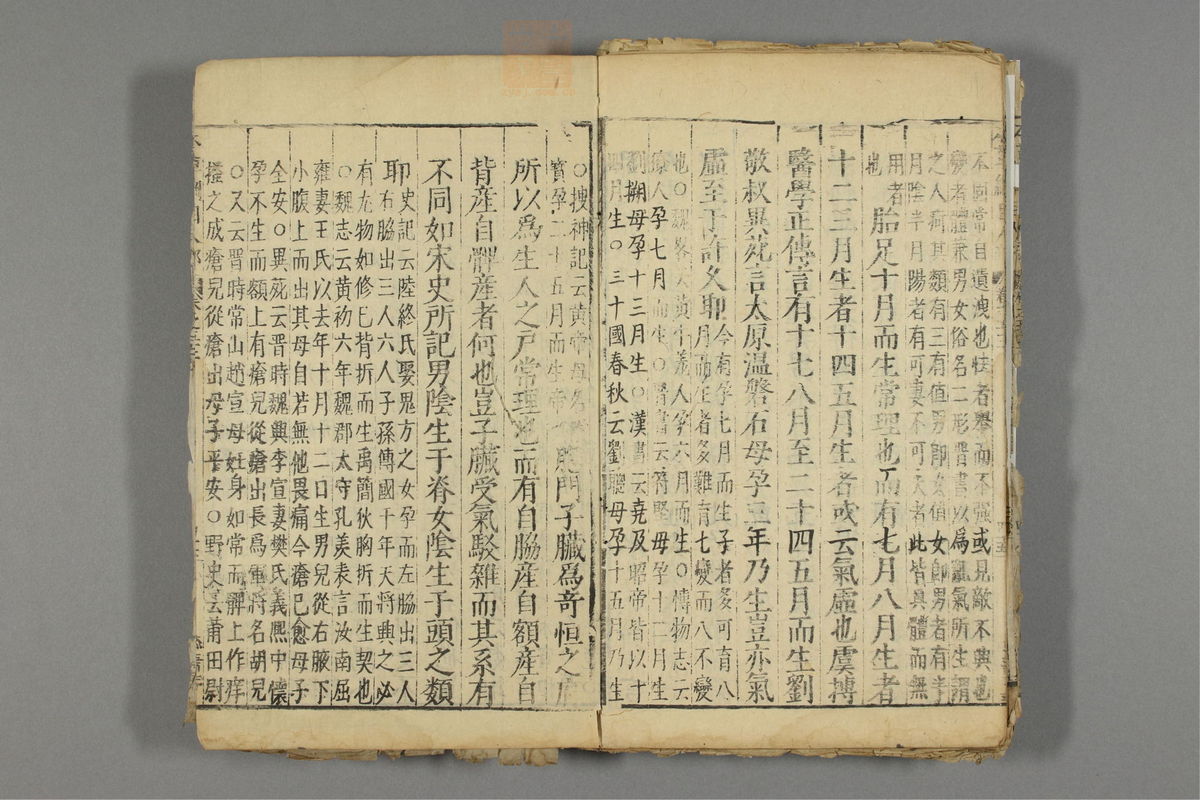 本因常自遺洩也怯者舉而不强或見敵不興也
變者體兼男女俗名二形晉書以為亂氣所生謂
之人痾其類有三有值男即女值女即男者有半
月陰半月陽者有可妻不可夫者此皆具體而無
用者
也
胎足十月而生常理也而有七月八月生者
十二三月生者十四五月生者或云氣虛也虞摶
醫學正傳言有十七八月至二十四五月而生劉
敬叔異苑言太原温磐石母孕三年乃生豈亦氣
虛至于許久耶
今有孕七月而生子者多可育八
月而生者多難育七變而八不變
也○魏畧云黄牛羗人孕六月而生○博物志云
獠人孕七月而生○晉書云符堅母孕十二月生
劉搠母孕十三月生○漢書云堯及昭帝皆以十
四月生○三十國春秋云劉聰母孕十五月乃生
○搜神記云黄帝母名
寶孕二十五月而生
胞門子臟為竒恒之府
所以為生人之戸常理也而有自脇産自額産自
背産自髀産者何也豈子臟受氣駁雜而其系有
不同如宋史所記男陰生于脊女陰生于頭之類
耶
史記云陸終氏娶鬼方之女孕而左脇出三人
右脇出三人六人子孫傳國千年天將興之必
有尤物如修已背折而生禹簡狄胸折而生契也
○魏志云黄初六年魏郡太守孔羨表言汝南屈
雍妻王氏以去年十月十二口生男兒從右腋下
小腹上而出其母自若無他畏痛今瘡已愈母子
全安○異苑云晉時魏興李宣妻樊氏義熙中懷
孕不生而額上有瘡兒從瘡出長為軍將名胡兒
○又云晉時常山趙宣母妊身如常而髀上作痒
搔之成瘡兒從瘡出母子平安○野史云莆田尉